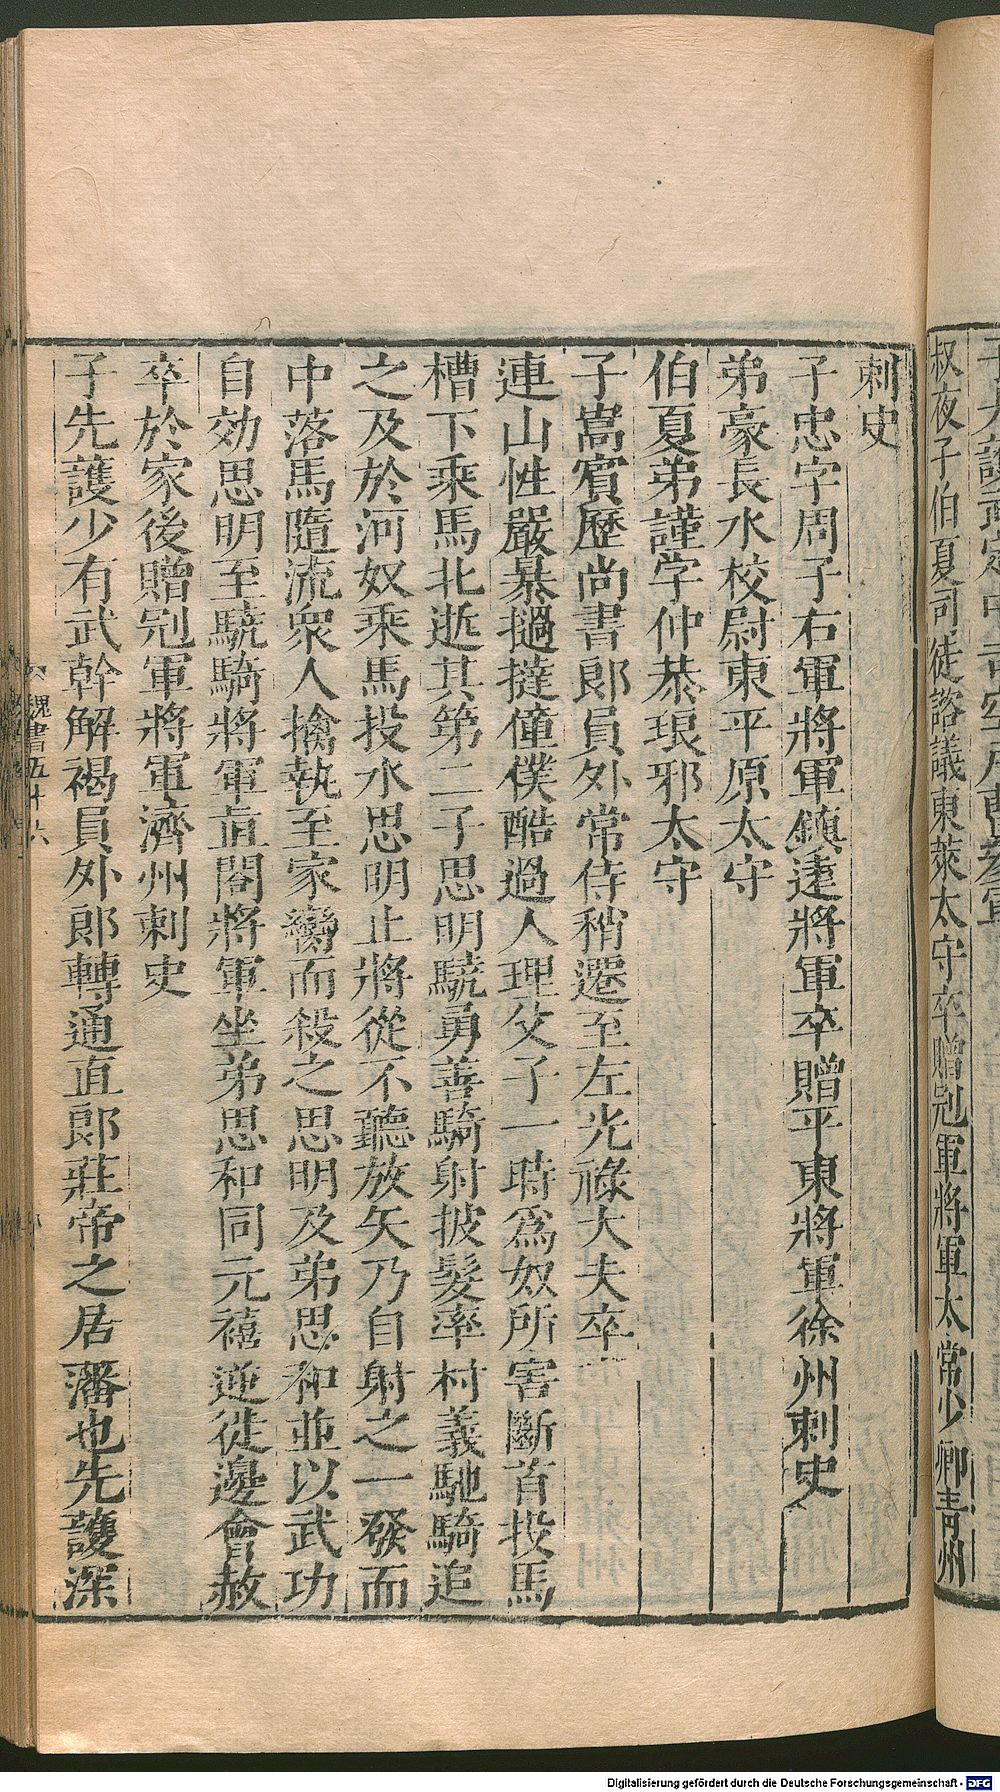 叔夜子伯夏司徒諮議東萊太守卒贈冠軍將軍太常少卿青州
刺史
子忠字周子右軍將軍鎮遠將軍卒贈平東將軍徐州刺史
弟豪長水校尉東平原太守
伯夏弟謹字仲恭琅邪太守
子嵩賓歷尚書郎員外常侍稍遷至左光祿大夫卒
連山性嚴暴撾撻僮僕酷過人理父子一時爲奴所害斷首投馬
槽下乘馬北逝其第二子思明驍勇善騎射披髮率村義馳騎追
之及於河奴乘馬投水思明止將從不聽放矢乃自射之一發而
中落馬隨流衆人擒執至家臠而殺之思明及弟思和並以武功
自効思明至驍騎將軍直閤將軍坐弟思和同元禧逆徙邊會赦
卒於家後贈冠軍將軍濟州刺史
子先護少有武幹解褐員外郎轉通直郎莊帝之居藩也先護深
魏書五十六
Digitalisierung gefördert durch die Deutsche Forschungsgemeinschaft - DFG